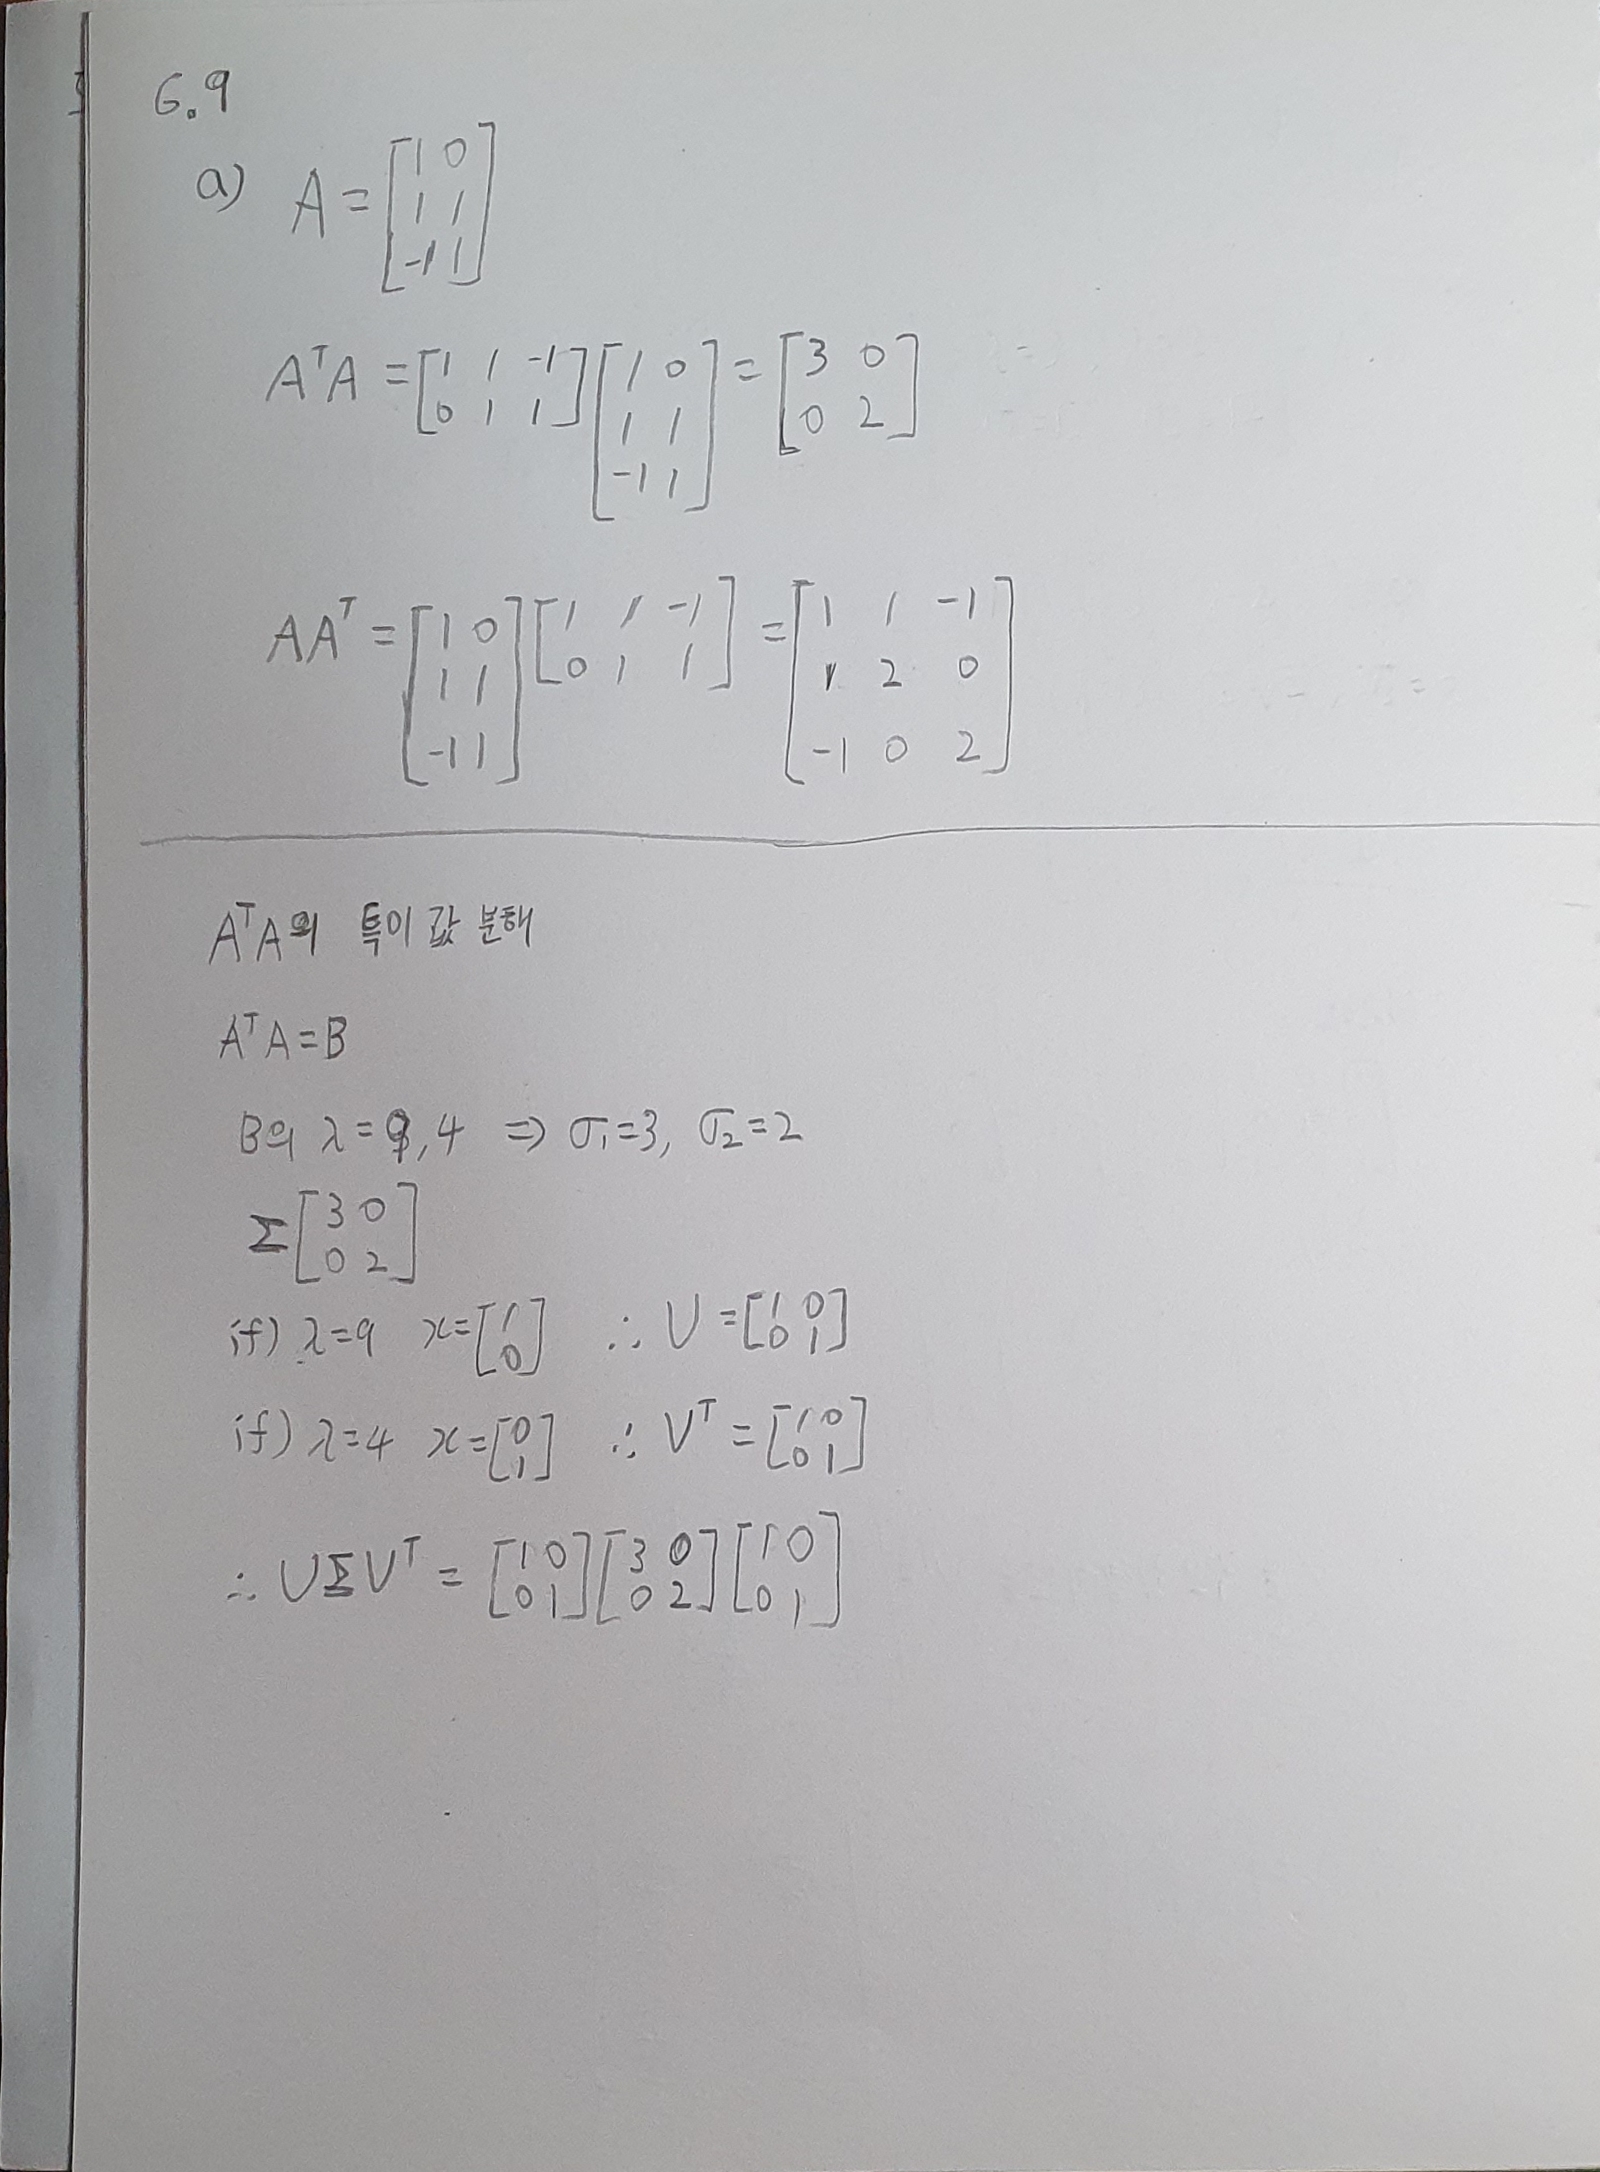 6.9
a) A = [1 0; 1 1; -1 1]
AᵀA = [1 1 -1; 0 1 1] [1 0; 1 1; -1 1] = [3 0; 0 2]
AAᵀ = [1 0; 1 1; -1 1] [1 1 -1; 0 1 1] = [1 1 -1; 1 2 0; -1 0 2]
AᵀA의 특이값 분해
AᵀA = B
B의 λ = 9, 4 ⇒ σ₁=3, σ₂=2
Σ [3 0; 0 2]
if) λ=9 x=[1; 0] ∴ U = [1 0; 0 1]
if) λ=4 x=[0; 1] ∴ Vᵀ = [1 0; 0 1]
∴ UΣVᵀ = [1 0; 0 1] [3 0; 0 2] [1 0; 0 1]